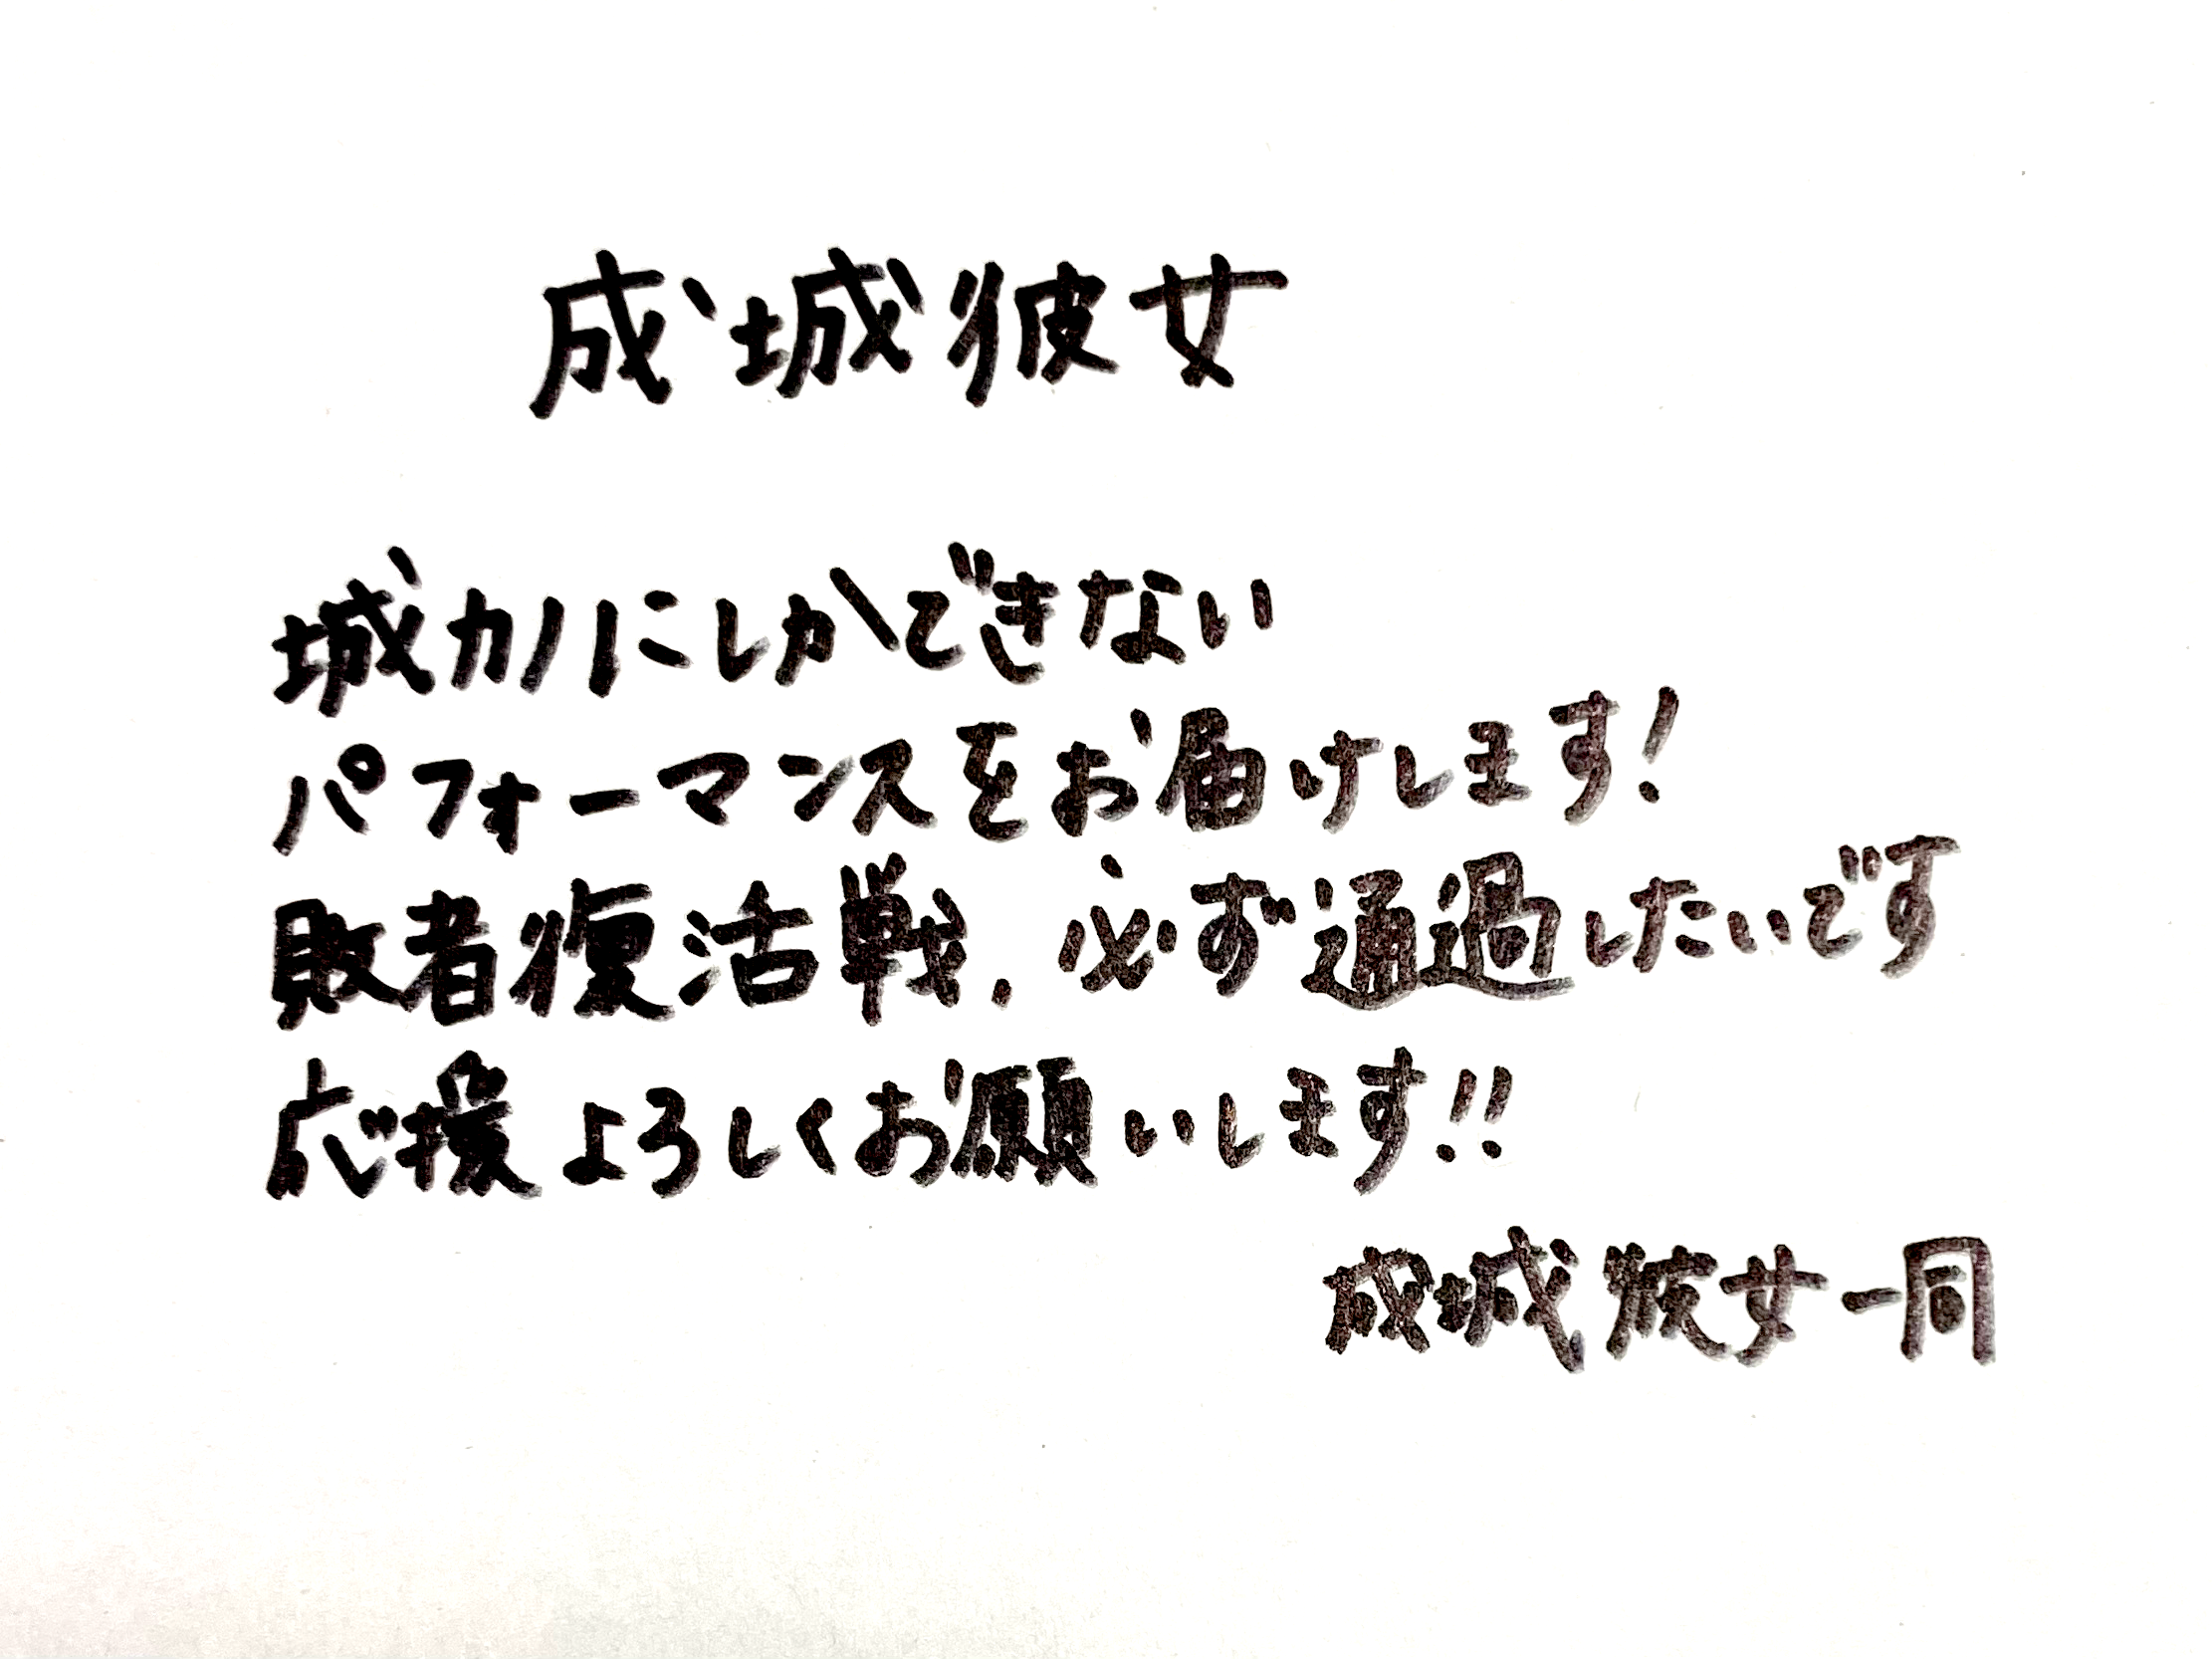 成城彼女
城カノにしかできない
パフォーマンスをお届けします!
敗者復活戦、必ず通過したいです
応援よろしくお願いします!!
成城彼女一同